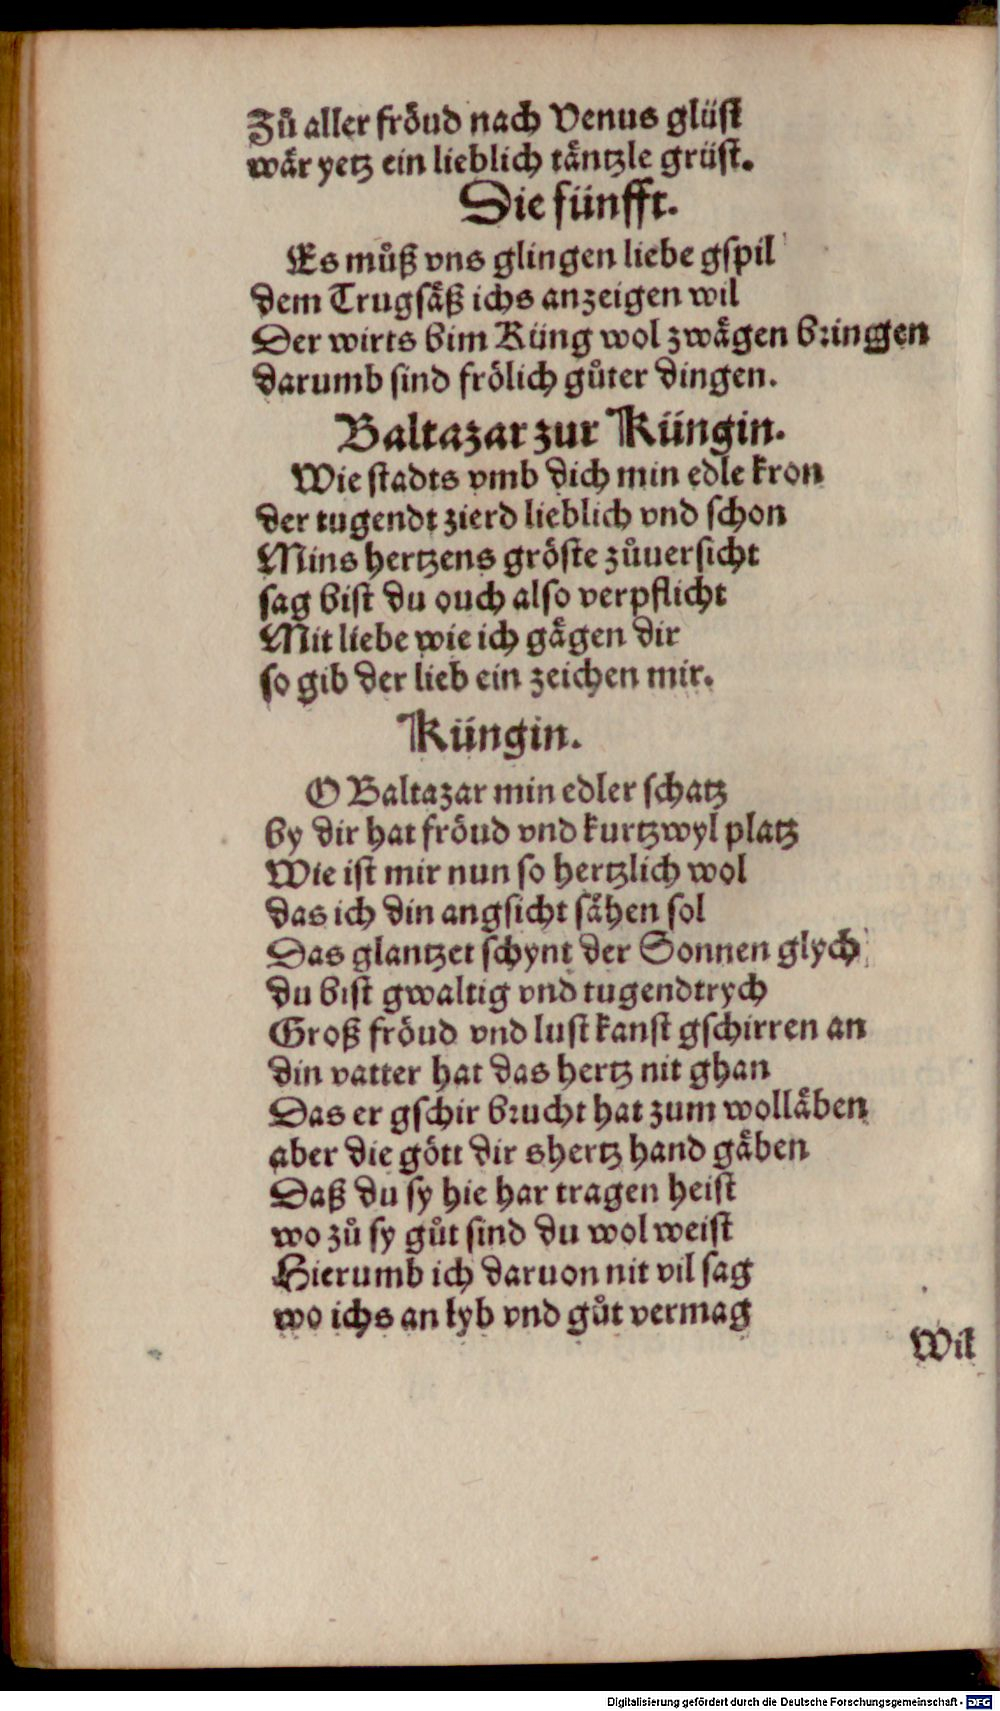 Zů aller fröud nach Venus glüst
wår yetz ein lieblich tåntzle grüst.
Die fünfft.
Es můß vns glingen liebe gspil
dem Trugsåß ichs anzeigen wil
Der wirts bim Küng wol zwågen bringen
darumb sind frölich gůter dingen.
Baltazar zur Küngin.
Wie stadts vmb dich min edle kron
der tugendt zierd lieblich vnd schon
Mins hertzens gröste zůuersicht
sag bist du ouch also verpflicht
Mit liebe wie ich gågen dir
so gib der lieb ein zeichen mir.
Küngin.
O Baltazar min edler schatz
by dir hat fröud vnd kurtzwyl platz
Wie ist mir nun so hertzlich wol
das ich din angsicht såhen sol
Das glantzet schynt der Sonnen glych
du bist gwaltig vnd tugendtrych
Groß fröud vnd lust kanst gschirren an
din vatter hat das hertz nit ghan
Das er gschir brucht hat zum wollåben
aber die gött dir shertz hand gåben
Daß du sy hie har tragen heist
wo zů sy gůt sind du wol weist
Hierumb ich daruon nit vil sag
wo ichs an lyb vnd gůt vermag
Wil
Digitalisierung gefördert durch die Deutsche Forschungsgemeinschaft - DFG